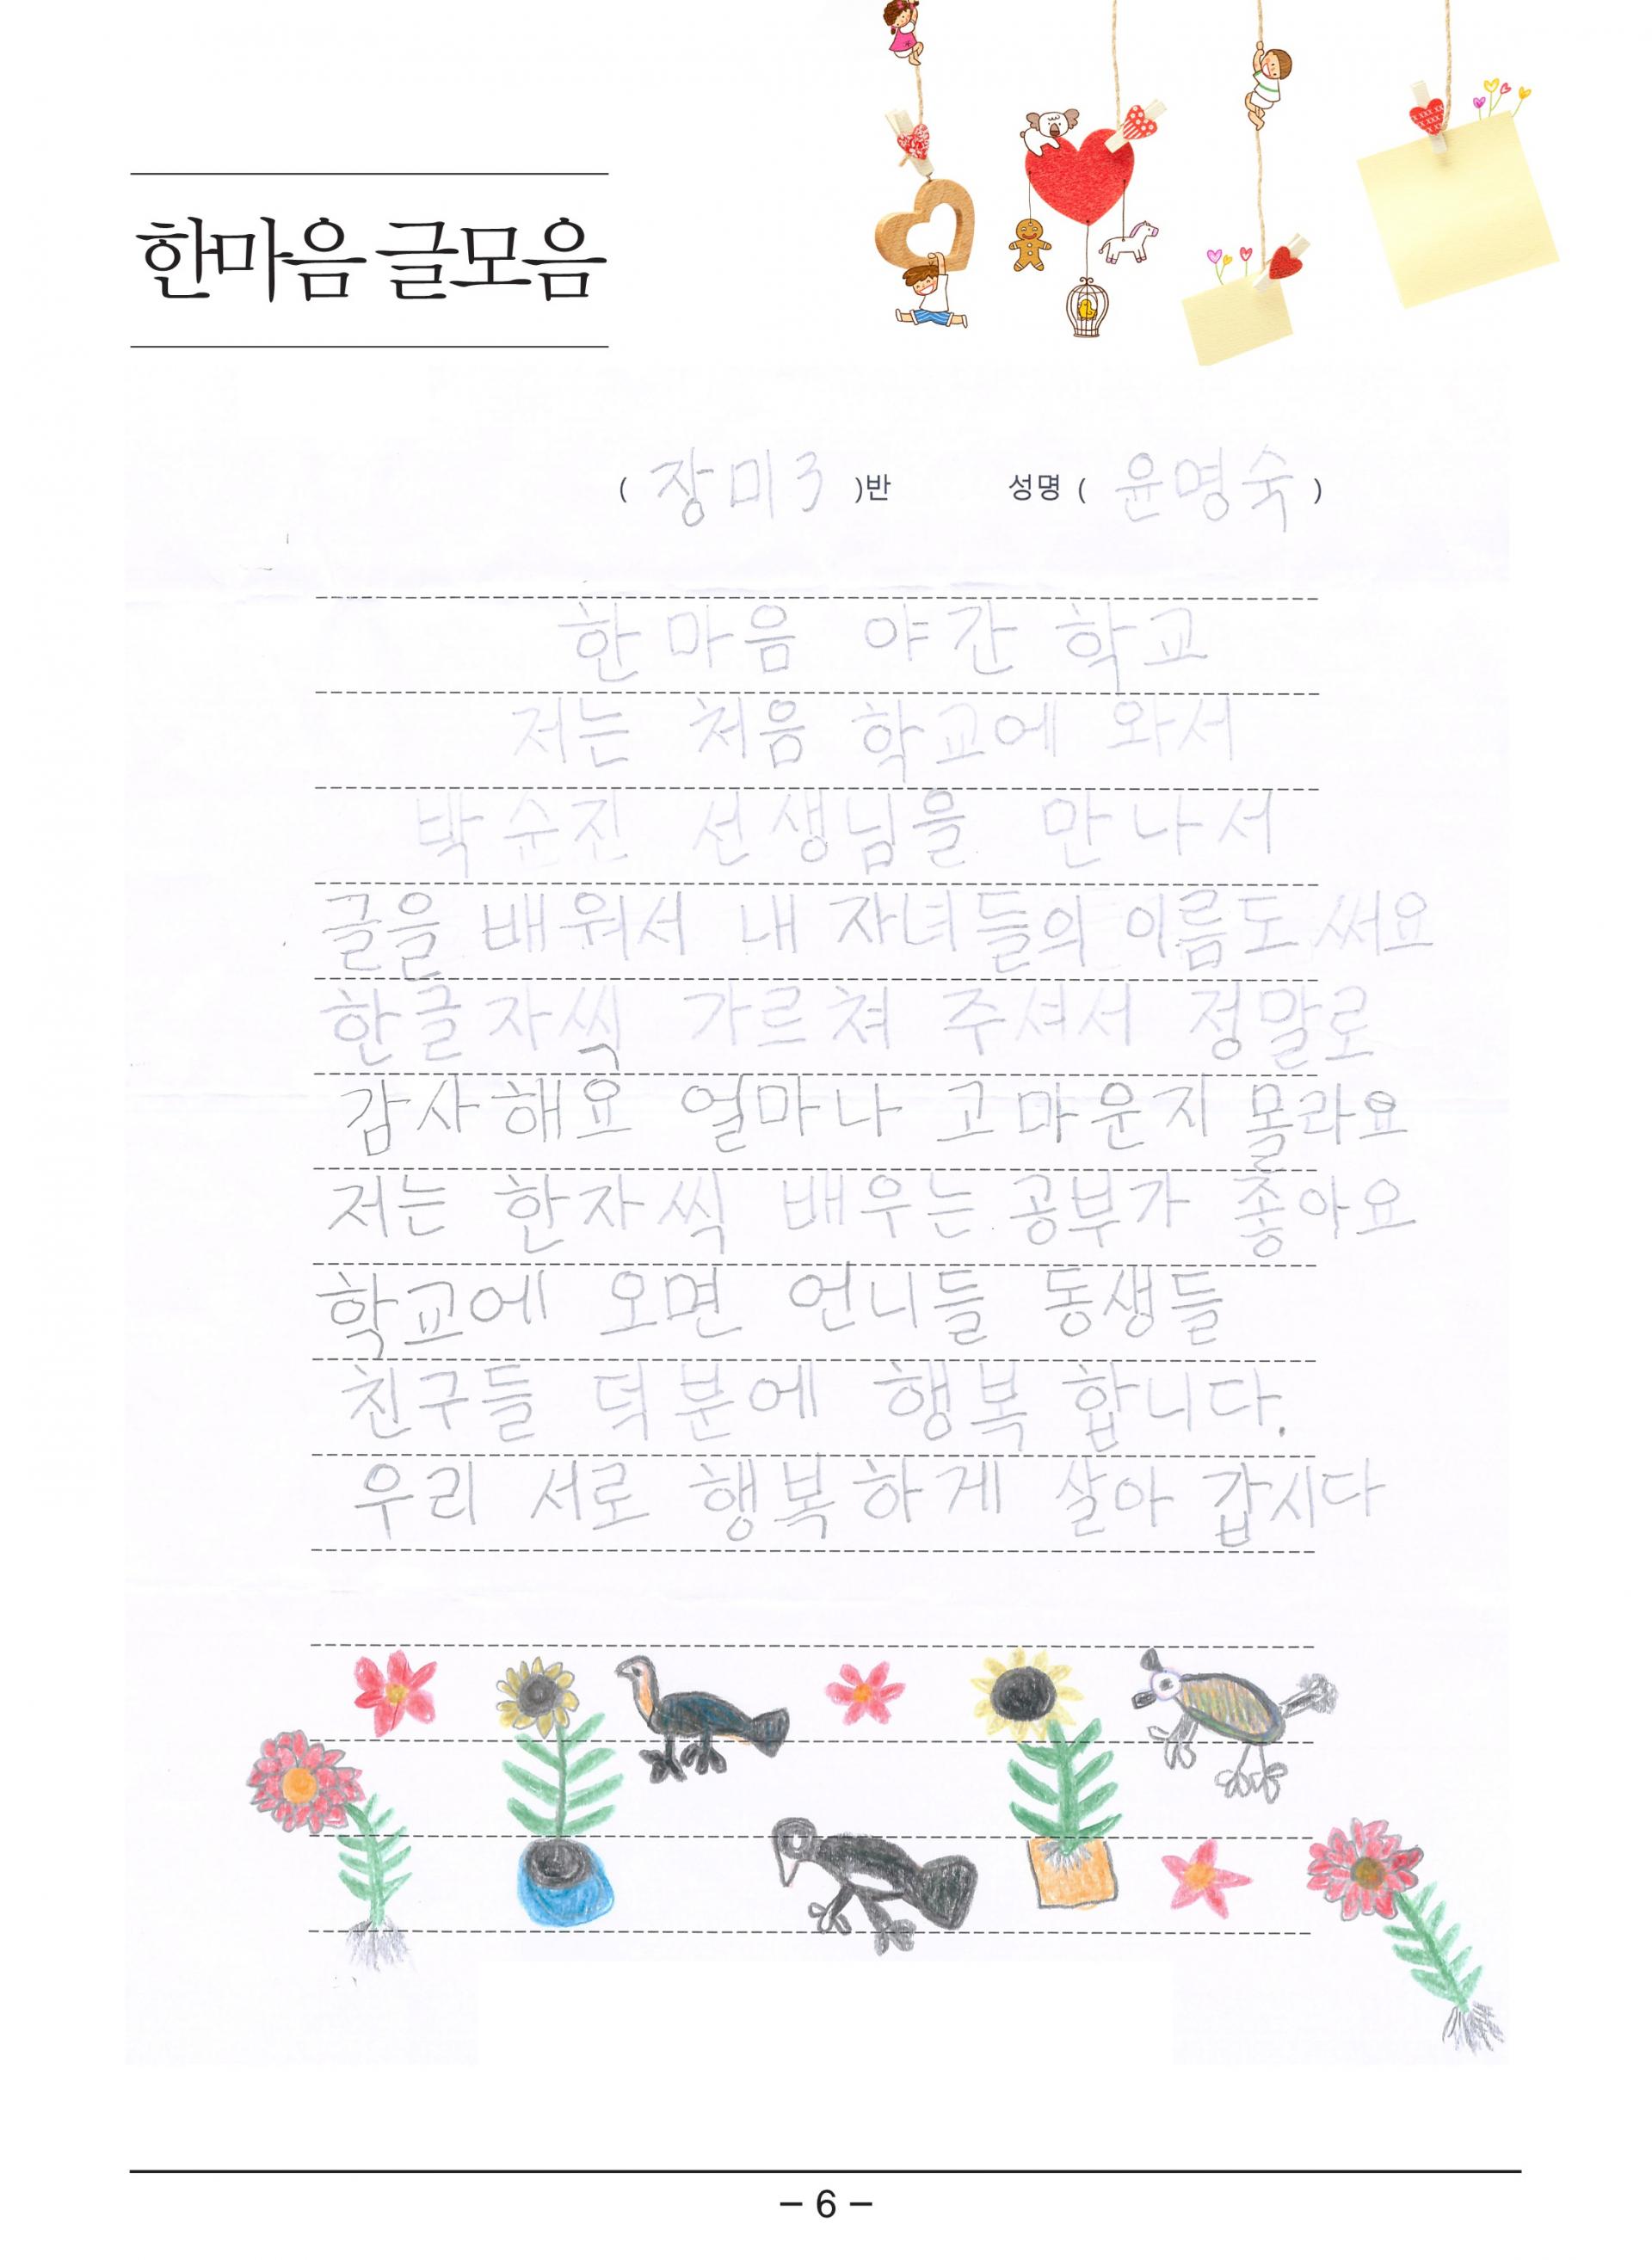 한마음 글모음
( 장미3 )반 성명 ( 윤영숙 )
한마음 야간 학교
저는 처음 학교에 와서
박순진 선생님을 만나서
글을 배워서 내 자녀들의 이름도 써요
한글자씩 가르쳐 주셔서 정말로
감사해요 얼마나 고마운지 몰라요
저는 한자씩 배우는 공부가 좋아요
학교에 오면 언니들 동생들
친구들 덕분에 행복 합니다.
우리 서로 행복하게 살아 갑시다
– 6 –